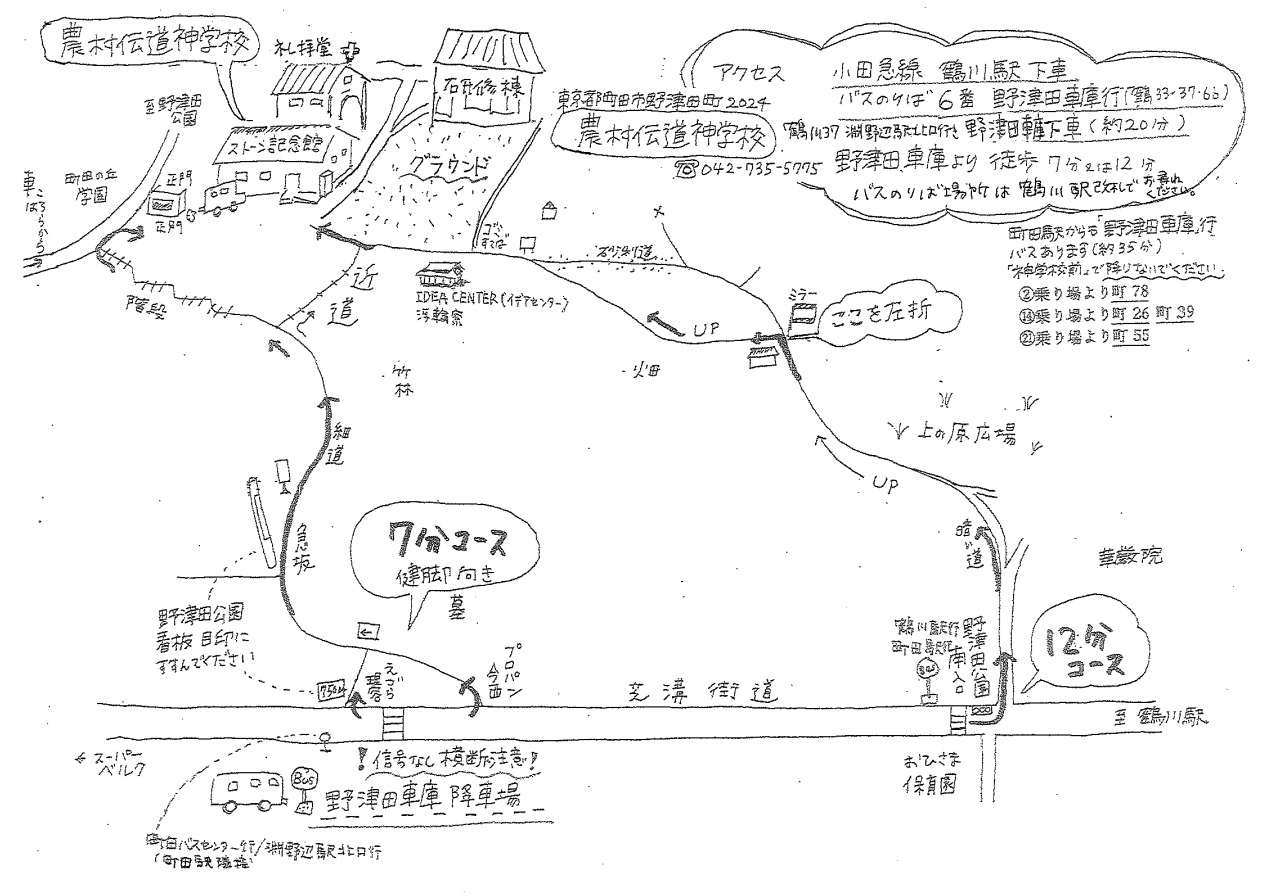 農村伝道神学校
礼拝堂
石研修棟
至野津田
公園
ストーン記念館
町田の丘
学園
正門
正門
車は
こちらから
グラウンド
ゴミ
すてば
階段
近道
IDEA CENTER(イデアセンター)
アクセス
小田急線 鶴川駅下車
バスのりば 6番 野津田車庫行(鶴33・37・66)
東京都町田市野津田町2024
農村伝道神学校
☎042-735-5775
鶴川37 淵野辺駅北口行き 野津田車庫下車(約20分)
野津田車庫より 徒歩 7分又は12分
バスのりば場所は鶴川駅改札でお尋ねください。
町田駅からも「野津田車庫」行
バスあります(約35分)
「神学校前」で降りないでください
②乗り場より町78
⑭乗り場より町26 町39
㉑乗り場より町55
砂利道
ミラー
ここを左折
UP
竹林
畑
上の原広場
UP
細道
急坂
7分コース
健脚向き
墓
暗い道
華厳院
野津田公園
看板目印に
すすんでください
750m
えづら
プロパン
今西
芝溝街道
鶴川駅行
町田駅行
BUS
野津田公園
南入口
12分
コース
至 鶴川駅
←スーパー
ベルク
!信号なし 横断注意!
BUS
野津田車庫 降車場
おひさま
保育園
町田バスセンター行/淵野辺駅北口行
(町田駅隣接)